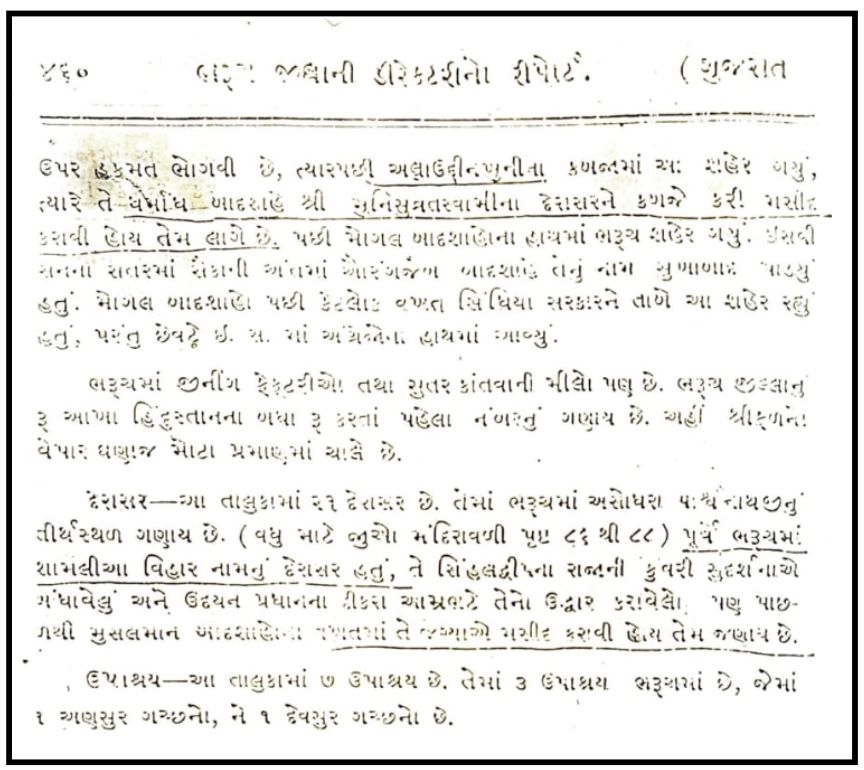 ૪૬૦ ભરૂચ જીલાની ડીરેકટરીનો રીપોર્ટ. ( ગુજરાત
ઉપર હકુમત ભોગવી છે, ત્યારપછી અલાઉદ્દીનખુનીના કબજામાં આ શહેર ગયું,
ત્યારે તે ધર્માંધ બાદશાહે શ્રી મુનિસુવ્રતસ્વામીના દેરાસરને કબજે કરી મસીદ
કરાવી હોય તેમ લાગે છે. પછી મોગલ બાદશાહોના હાથમાં ભરૂચ શહેર ગયું. ઇસવી
સનના સતરમાં સૈકાની અંતમાં ઔરંગજેબ બાદશાહે તેનું નામ સુખાબાદ પાડયું
હતું. મોગલ બાદશાહો પછી કેટલોક વખત સિંધિયા સરકારને તાબે આ શહેર રહ્યું
હતું, પરંતુ છેવટે ઈ. સ. માં અંગ્રેજોના હાથમાં આવ્યું.
ભરૂચમાં જીનીંગ ફેકટરીઓ તથા સુતર કાંતવાની મીલો પણ છે. ભરૂચ જીલ્લાનું
રૂ આખા હિંદુસ્તાનના બધા રૂ કરતાં પહેલા નંબરનું ગણાય છે. અહીં શ્રીફળનો
વેપાર ઘણાજ મોટા પ્રમાણમાં ચાલે છે.
દેરાસર—આ તાલુકામાં ૨૧ દેરાસર છે. તેમાં ભરૂચમાં અસોધરા પાર્શ્વનાથજીનું
તીર્થસ્થળ ગણાય છે. ( વધુ માટે જુઓ મંદિરાવળી પૃષ્ટ ૮૬ થી ૮૮ ) પૂર્વે ભરૂચમાં
શામલીઆ વિહાર નામનું દેરાસર હતું, તે સિંહલદ્વીપના રાજાની કુંવરી સુદર્શનાએ
બંધાવેલું અને ઉદયન પ્રધાનના દીકરા આમ્રભટે તેનો ઉદ્ધાર કરાવેલો પણ પાછ-
ળથી મુસલમાન બાદશાહોના વખતમાં તે જગ્યાએ મસીદ કરાવી હોય તેમ જણાય છે.
ઉપાશ્રય—આ તાલુકામાં ૭ ઉપાશ્રય છે. તેમાં ૩ ઉપાશ્રય ભરૂચમાં છે, જેમાં
૧ અણસુર ગચ્છનો, ને ૧ દેવસુર ગચ્છનો છે.